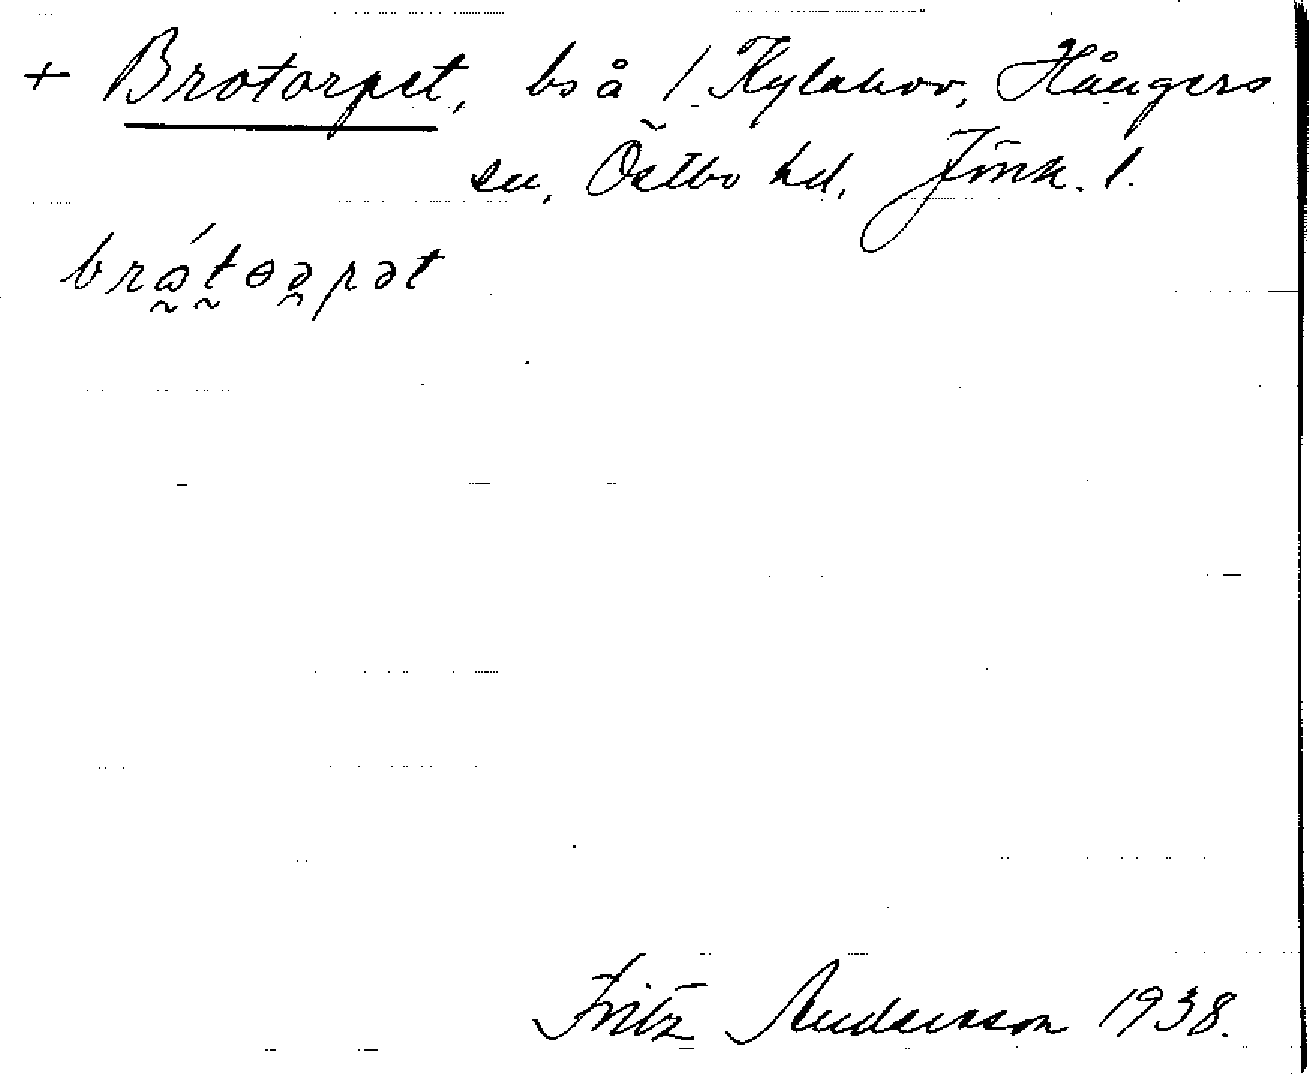 + Brotorpet, bså / Kylahov, Hångers
sn, Östbo hd, Jönk. l.
brátɵəpət
Fritz Andersson 1938.